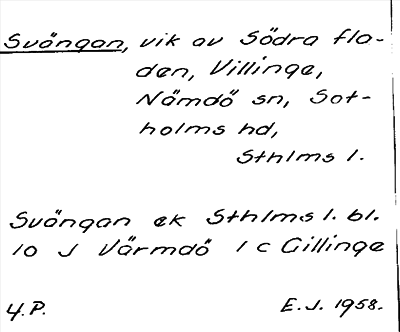 Svängan, vik av Södra fla-
den, Villinge,
Nämdö sn, Sot-
holms hd,
Sthlms l.
Svängan ek Sthlms l. bl.
10 J Värmdö 1 c Gillinge
4.P. E.J. 1958.